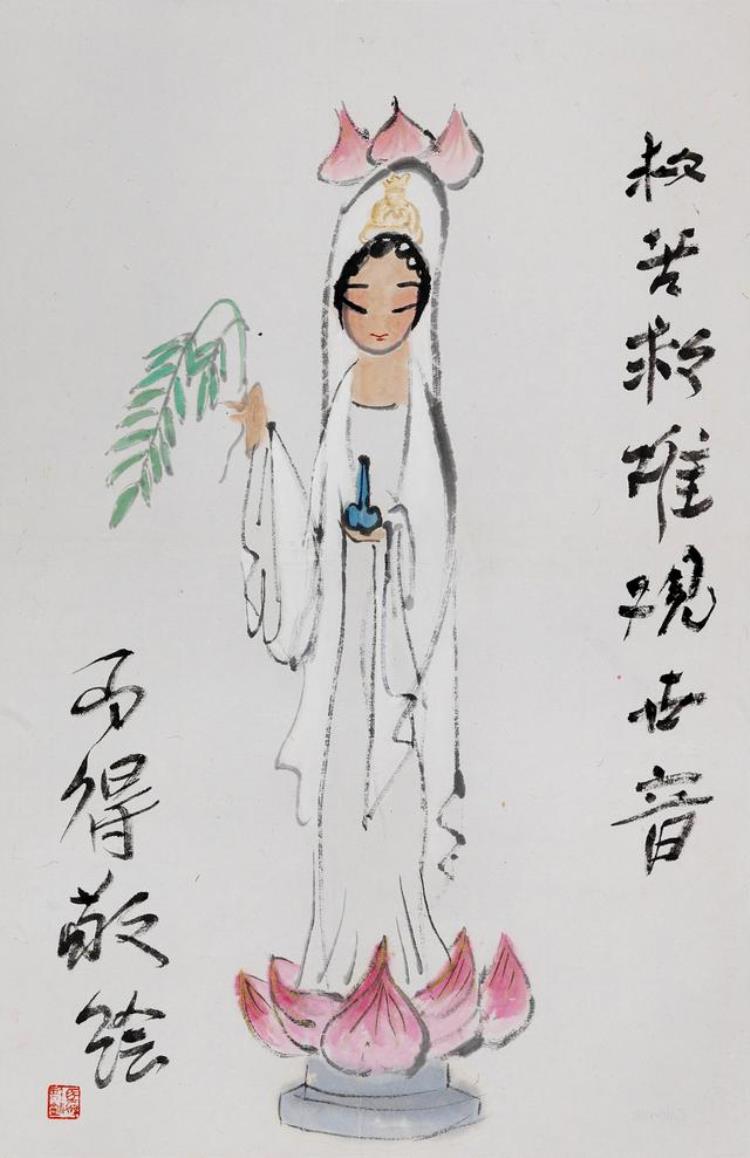 救苦救难观世音
马得敬绘